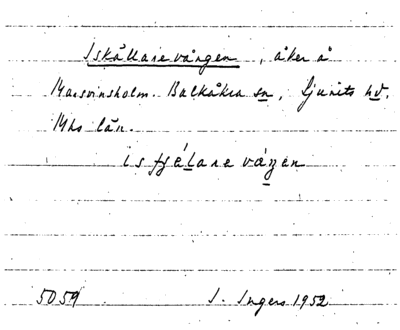 Iskällarevången, åker å
Marsvinsholm. Balkåkra sn, Ljunits hd.
Mhs län.
isfjélarevången
5059 I. Ingers 1952